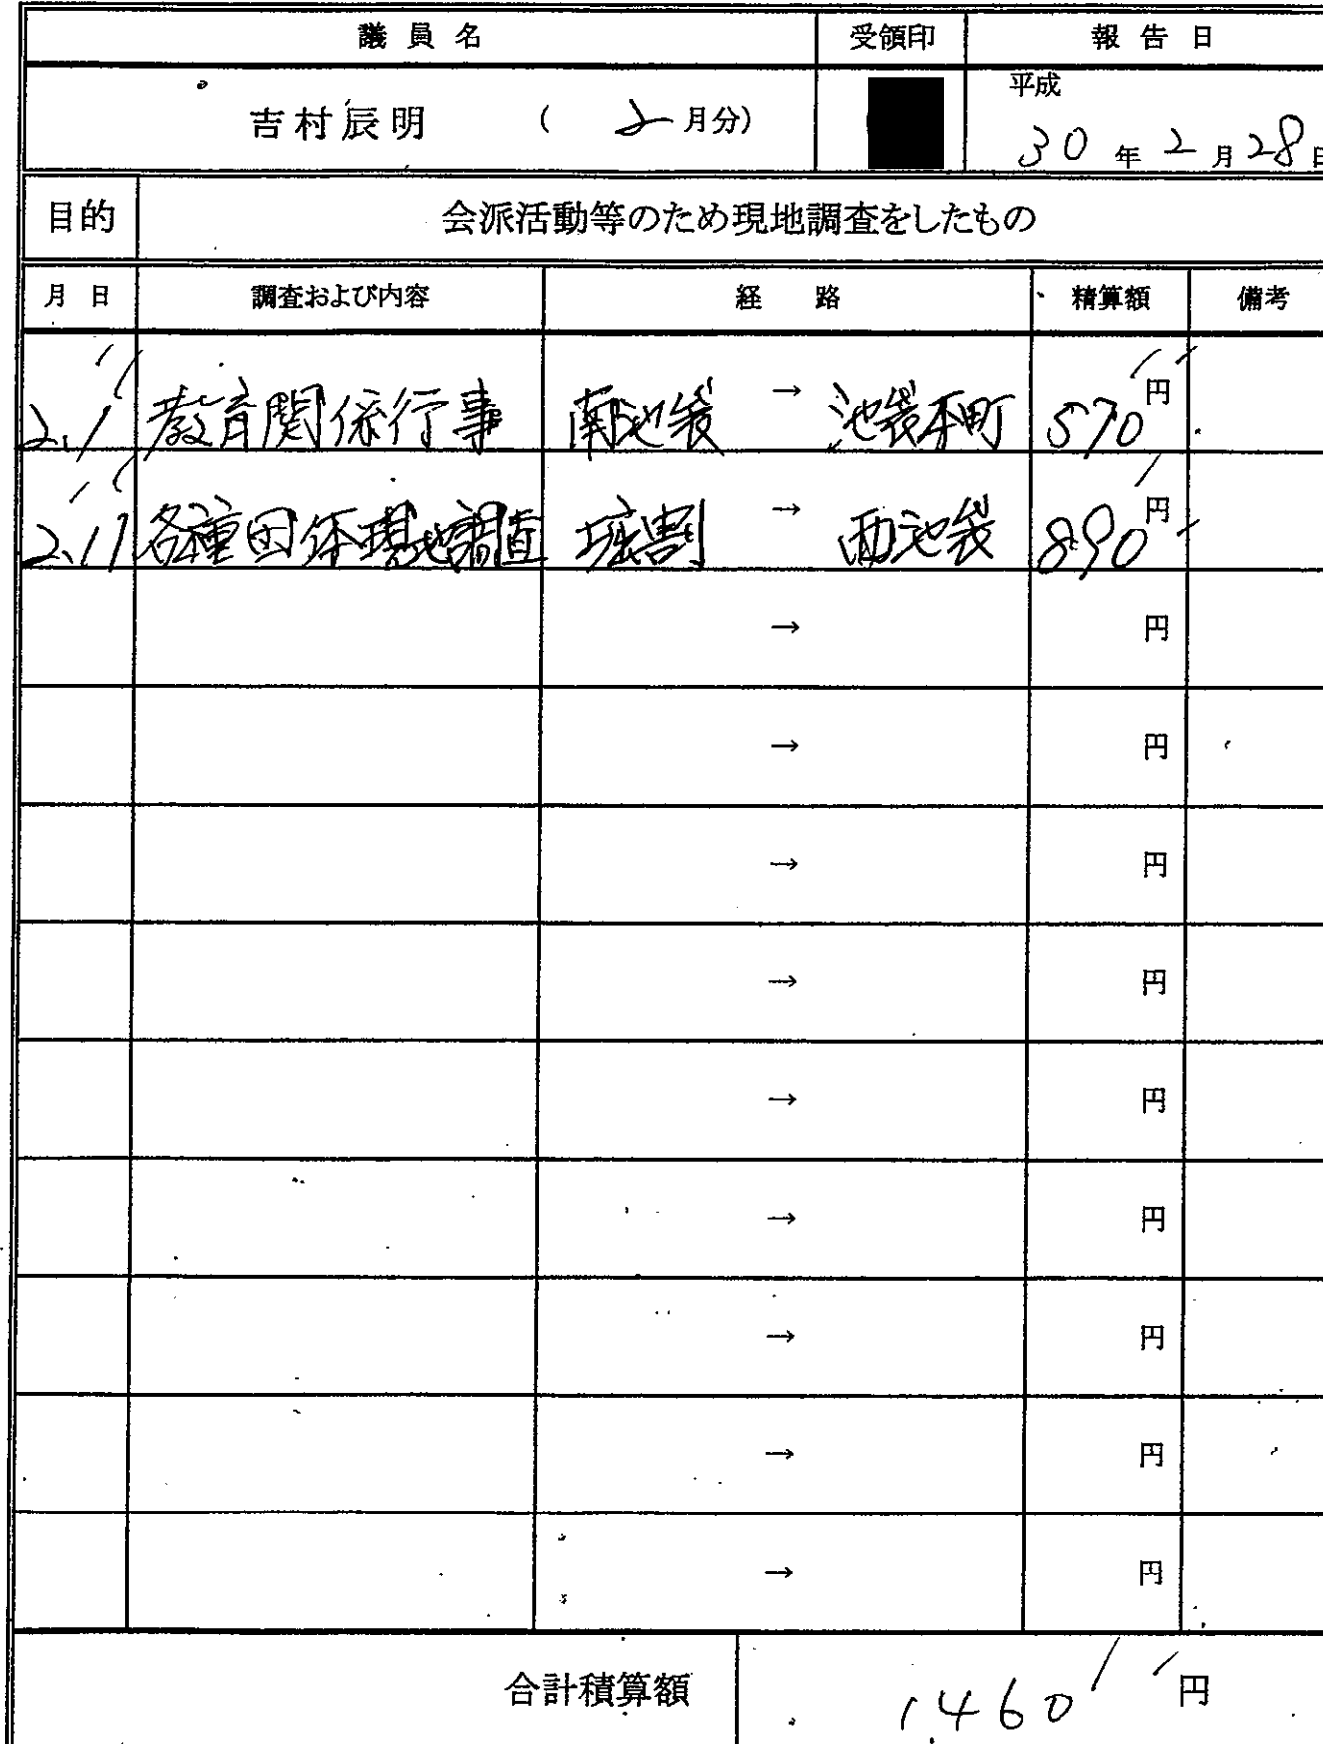 議員名 受領印 報告日
吉村辰明 ( 2月分) 平成 30年2月28日
目的 会派活動等のため現地調査をしたもの
月日 調査および内容 経路 精算額 備考
2.1 教育関係行事 南池袋 → 池袋本町 570円
2.11 各種団体現地調査 堀割 → 西池袋 890円
→ 円
→ 円
→ 円
→ 円
→ 円
→ 円
→ 円
→ 円
→ 円
合計積算額 1,460円